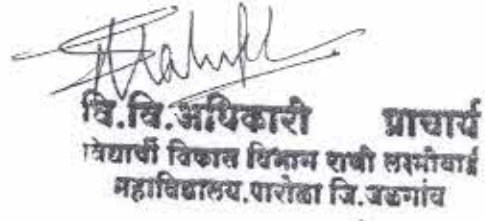 वि.वि.अधिकारी प्राचार्य
विद्यार्थी विकास विभाग राणी लक्ष्मीबाई
महाविद्यालय.पारोळा जि.जळगांव